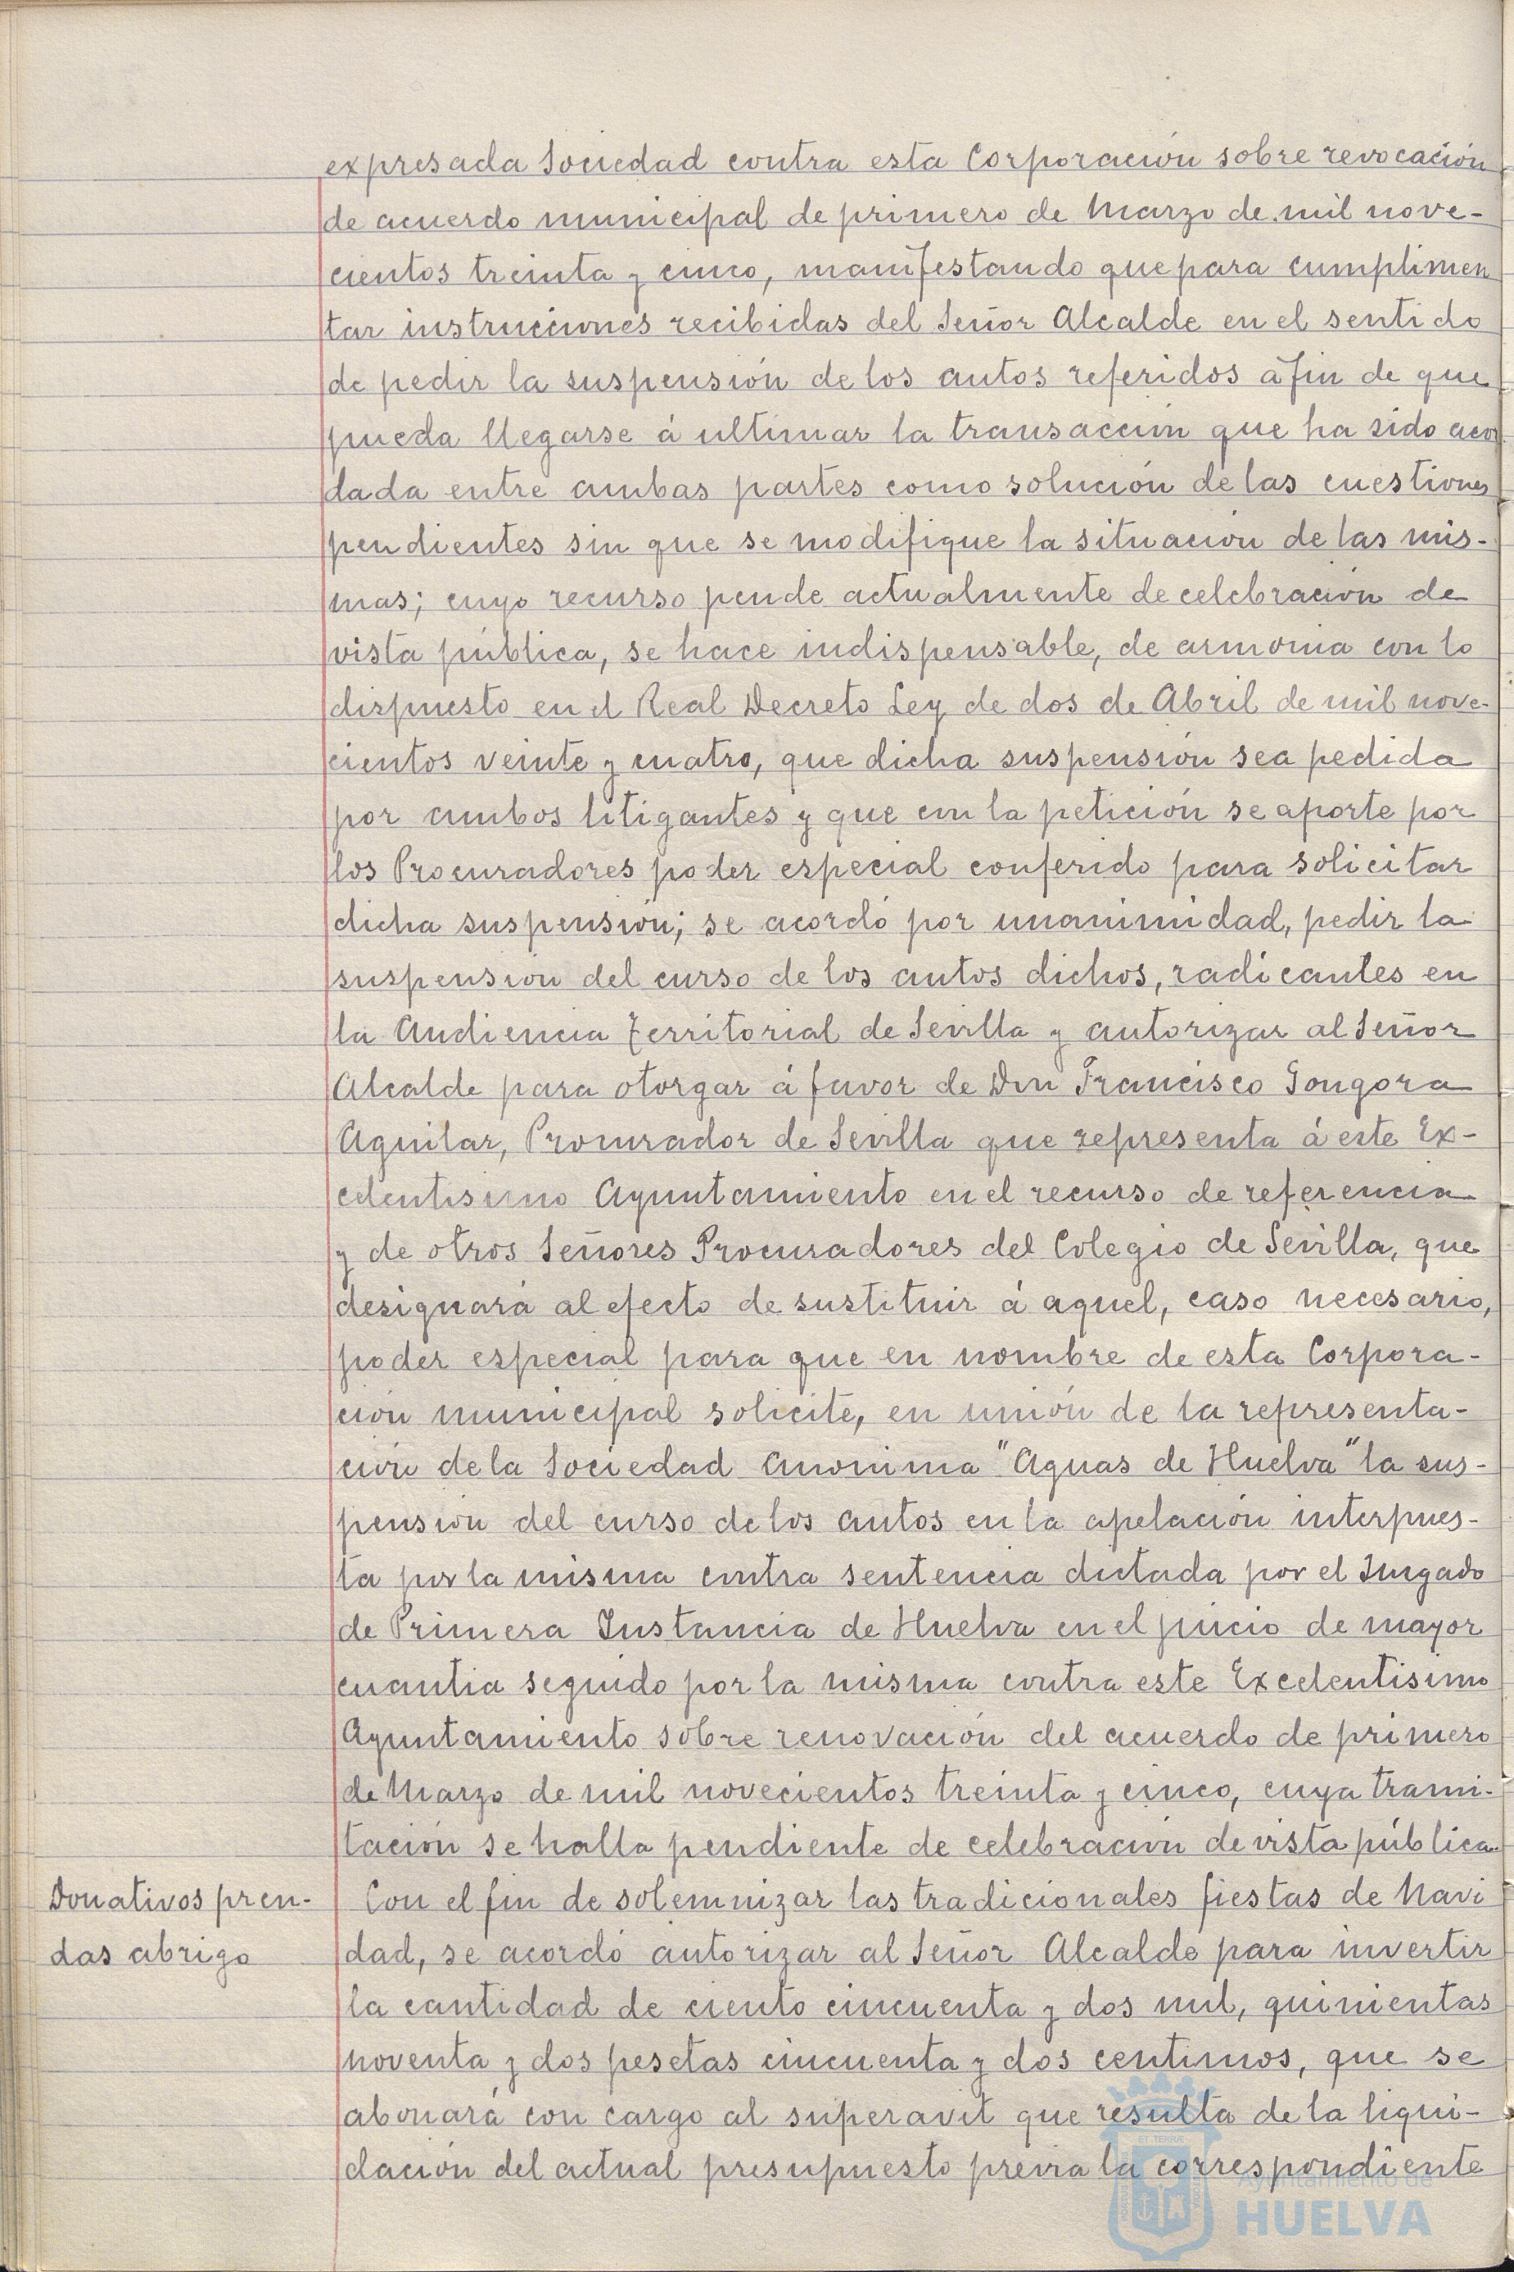 expresada Sociedad contra esta Corporación sobre revocación
de acuerdo municipal de primero de Marzo de mil nove-
cientos treinta y cinco, manifestando que para cumplimen
tar instrucciones recibidas del Señor Alcalde en el sentido
de pedir la suspensión de los autos referidos á fin de que
pueda llegarse á ultimar la transacción que ha sido acor
dada entre ambas partes como solución de las cuestiones
pendientes sin que se modifique la situación de las mis-
mas; cuyo recurso pende actualmente de celebración de
vista pública, se hace indispensable, de armonia con lo
dispuesto en el Real Decreto Ley de dos de Abril de mil nove-
cientos veinte y cuatro, que dicha suspensión sea pedida
por ambos litigantes y que con la petición se aporte por
los Procuradores poder especial conferido para solicitar
dicha suspensión; se acordó por unanimidad, pedir la
suspensión del curso de los autos dichos, radicantes en
la Audiencia Territorial de Sevilla y autorizar al Señor
Alcalde para otorgar á favor de Don Francisco Gongora
Aguilar, Procurador de Sevilla que representa á este Ex-
celentisimo Ayuntamiento en el recurso de referencia
y de otros Señores Procuradores del Colegio de Sevilla, que
designará al efecto de sustituir á aquel, caso necesario,
poder especial para que en nombre de esta Corpora-
ción municipal solicite, en unión de la representa-
ción de la Sociedad Anonima "Aguas de Huelva" la sus-
pensión del curso de los autos en la apelación interpues-
ta por la misma contra sentencia dictada por el Juzgado
de Primera Instancia de Huelva en el juicio de mayor
cuantia seguido por la misma contra este Excelentisimo
Ayuntamiento sobre renovación del acuerdo de primero
de Marzo de mil novecientos treinta y cinco, cuya trami-
tación se halla pendiente de celebración de vista pública.
Donativos pren-
das abrigo
Con el fin de solemnizar las tradicionales fiestas de Navi
dad, se acordó autorizar al Señor Alcalde para invertir
la cantidad de ciento cincuenta y dos mil, quinientas
noventa y dos pesetas cincuenta y dos centimos, que se
abonará con cargo al superavit que resulta de la liqui-
dación del actual presupuesto previa la correspondiente
Ayuntamiento de
HUELVA